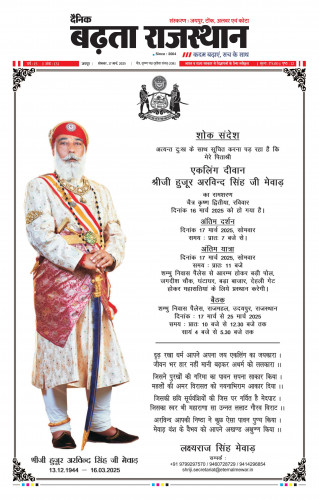 दैनिक
संस्करण : जयपुर, टोंक, अलवर एवं कोटा
बढ़ता राजस्थान
Since : 2004
कदम बढ़ाएं, सच के साथ
शोक संदेश
अत्यन्त दुःख के साथ सूचित करना पड़ रहा है कि
मेरे पिताश्री
एकलिंग दीवान
श्रीजी हुजूर अरविन्द सिंह जी मेवाड़
का रामशरण
चैत्र कृष्ण द्वितीया, रविवार
दिनांक 16 मार्च 2025 को हो गया है।
अंतिम दर्शन
दिनांक 17 मार्च 2025, सोमवार
समय : प्रातः 7 बजे से।
अंतिम यात्रा
दिनांक 17 मार्च 2025, सोमवार
समय : प्रातः 11 बजे
शम्भु निवास पैलेस से आरम्भ होकर बड़ी पोल,
जगदीश चौक, घंटाघर, बड़ा बाजार, देहली गेट
होकर महासतियां के लिये प्रस्थान करेगी।
बैठक
शम्भु निवास पैलेस, राजमहल, उदयपुर, राजस्थान
दिनांक : 17 मार्च से 25 मार्च 2025
समय : प्रातः 10 बजे से 12.30 बजे तक
सायं 4 बजे से 5.30 बजे तक
दृढ़ रखा धर्म आपने अपना जय एकलिंग का जयकारा।
जीवन भर हार नहीं मानी बढ़कर अधर्म को ललकारा।।
जिसने पुरखों की गरिमा का पावन सपना साकार किया।
महलों की अमर विरासत को नवनाभिराम आकार दिया।।
जिसकी छवि सूर्यवंशियों को जिस पर गर्वित है मेदपाट
जिसका स्वर थी महाराणा सा उन्नत ललाट गौरव विराट।।
अरविन्द आपकी निष्ठा ने कुछ ऐसा पावन पुण्य किया।
मेवाड़ वंश के वैभव को आपने अखण्ड अक्षुण्ण किया।।
लक्ष्यराज सिंह मेवाड़
सम्पर्क :
+91 9799297570 / 9460728729 / 9414296854
shriji.secretariat@eternalmewar.in
श्रीजी हुजूर अरविन्द सिंह जी मेवाड़
13.12.1944 – 16.03.2025